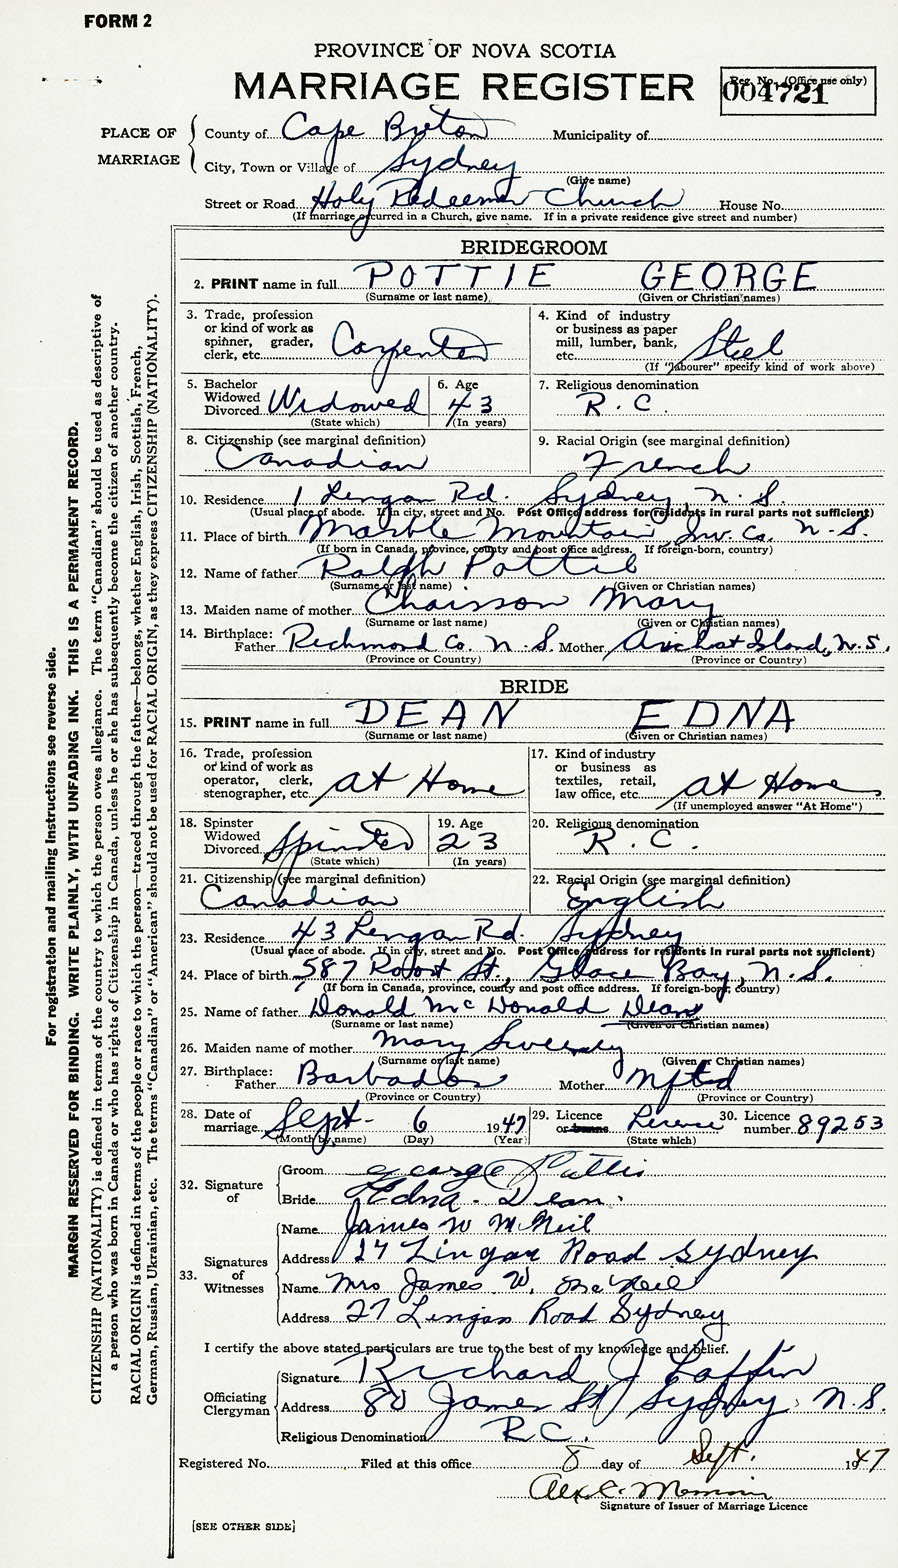 FORM 2
PROVINCE OF NOVA SCOTIA
MARRIAGE REGISTER
Reg. No. (Office use only)
004721
PLACE OF MARRIAGE
County of Cape Breton Municipality of
City, Town or Village of Sydney
(Give name)
Street or Road Holy Redeemer Church House No.
(If marriage occurred in a Church, give name. If in a private residence give street and number)
BRIDEGROOM
2. PRINT name in full POTTIE GEORGE
(Surname or last name) (Given or Christian names)
3. Trade, profession or kind of work as spinner, grader, clerk, etc. Carpenter
4. Kind of industry or business as paper mill, lumber, bank, etc. Steel
(If "labourer" specify kind of work above)
5. Bachelor Widowed Divorced Widowed
(State which)
6. Age 43
(In years)
7. Religious denomination R.C.
8. Citizenship (see marginal definition) Canadian
9. Racial Origin (see marginal definition) French
10. Residence 1 Lengan Rd. Sydney, N.S.
(Usual place of abode. If in city, street and No. Post Office address for residents in rural parts not sufficient)
11. Place of birth Marble Mountain, Inv. Co. N.S.
(If born in Canada, province, county and post office address. If foreign-born, country)
12. Name of father Ralph Pottie
(Surname or last name) (Given or Christian names)
13. Maiden name of mother Chaisson Mary
(Surname or last name) (Given or Christian names)
14. Birthplace: Father Richmond Co. N.S. Mother Arichat Island, N.S.
(Province or Country) (Province or Country)
BRIDE
15. PRINT name in full DEAN EDNA
(Surname or last name) (Given or Christian names)
16. Trade, profession or kind of work as operator, clerk, stenographer, etc. at Home
17. Kind of industry or business as textiles, retail, law office, etc. at Home
(If unemployed answer "At Home")
18. Spinster Widowed Divorced Spinster
(State which)
19. Age 23
(In years)
20. Religious denomination R.C.
21. Citizenship (see marginal definition) Canadian
22. Racial Origin (see marginal definition) English
23. Residence 43 Lengan Rd. Sydney
(Usual place of abode. If in city, street and No. Post Office address for residents in rural parts not sufficient)
24. Place of birth 587 St., Glace Bay, N.S.
(If born in Canada, province, county and post office address. If foreign-born, country)
25. Name of father Donald McDonald Dean
(Surname or last name) (Given or Christian names)
26. Maiden name of mother Mary Sweeney
(Surname or last name) (Given or Christian names)
27. Birthplace: Father Barbados Mother Nfld
(Province or Country) (Province or Country)
28. Date of marriage Sept. 6 1947
(Month by name) (Day) (Year)
29. Licence or banns License
(State which)
30. Licence number 89253
32. Signature of
Groom George Pottie
Bride Edna Dean.
33. Signatures of Witnesses
Name James W McNeil
Address 27 Lingan Road Sydney
Name Mrs James W. McNeil
Address 27 Lingan Road Sydney
I certify the above stated particulars are true to the best of my knowledge and belief.
Officiating Clergyman
Signature Richard J Laffin
Address 80 James St, Sydney, N.S.
Religious Denomination R.C.
Registered No. Filed at this office 8 day of Sept. 1947
Signature of Issuer of Marriage Licence
[SEE OTHER SIDE]
For registration and mailing instructions see reverse side.
MARGIN RESERVED FOR BINDING. WRITE PLAINLY, WITH UNFADING INK. THIS IS A PERMANENT RECORD.
CITIZENSHIP (NATIONALITY) is defined in terms of the country to which the person owes allegiance. The term "Canadian" should be used as descriptive of
a person who was born in Canada or who has rights of Citizenship in Canada, unless he or she has subsequently become the citizen of another country.
RACIAL ORIGIN is defined in terms of the people or race to which the person—traced through the father—belongs, whether English, Irish, Scottish, French,
German, Russian, Ukrainian, etc. The terms "Canadian" or "American" should not be used for RACIAL ORIGIN, as they express CITIZENSHIP (NATIONALITY).